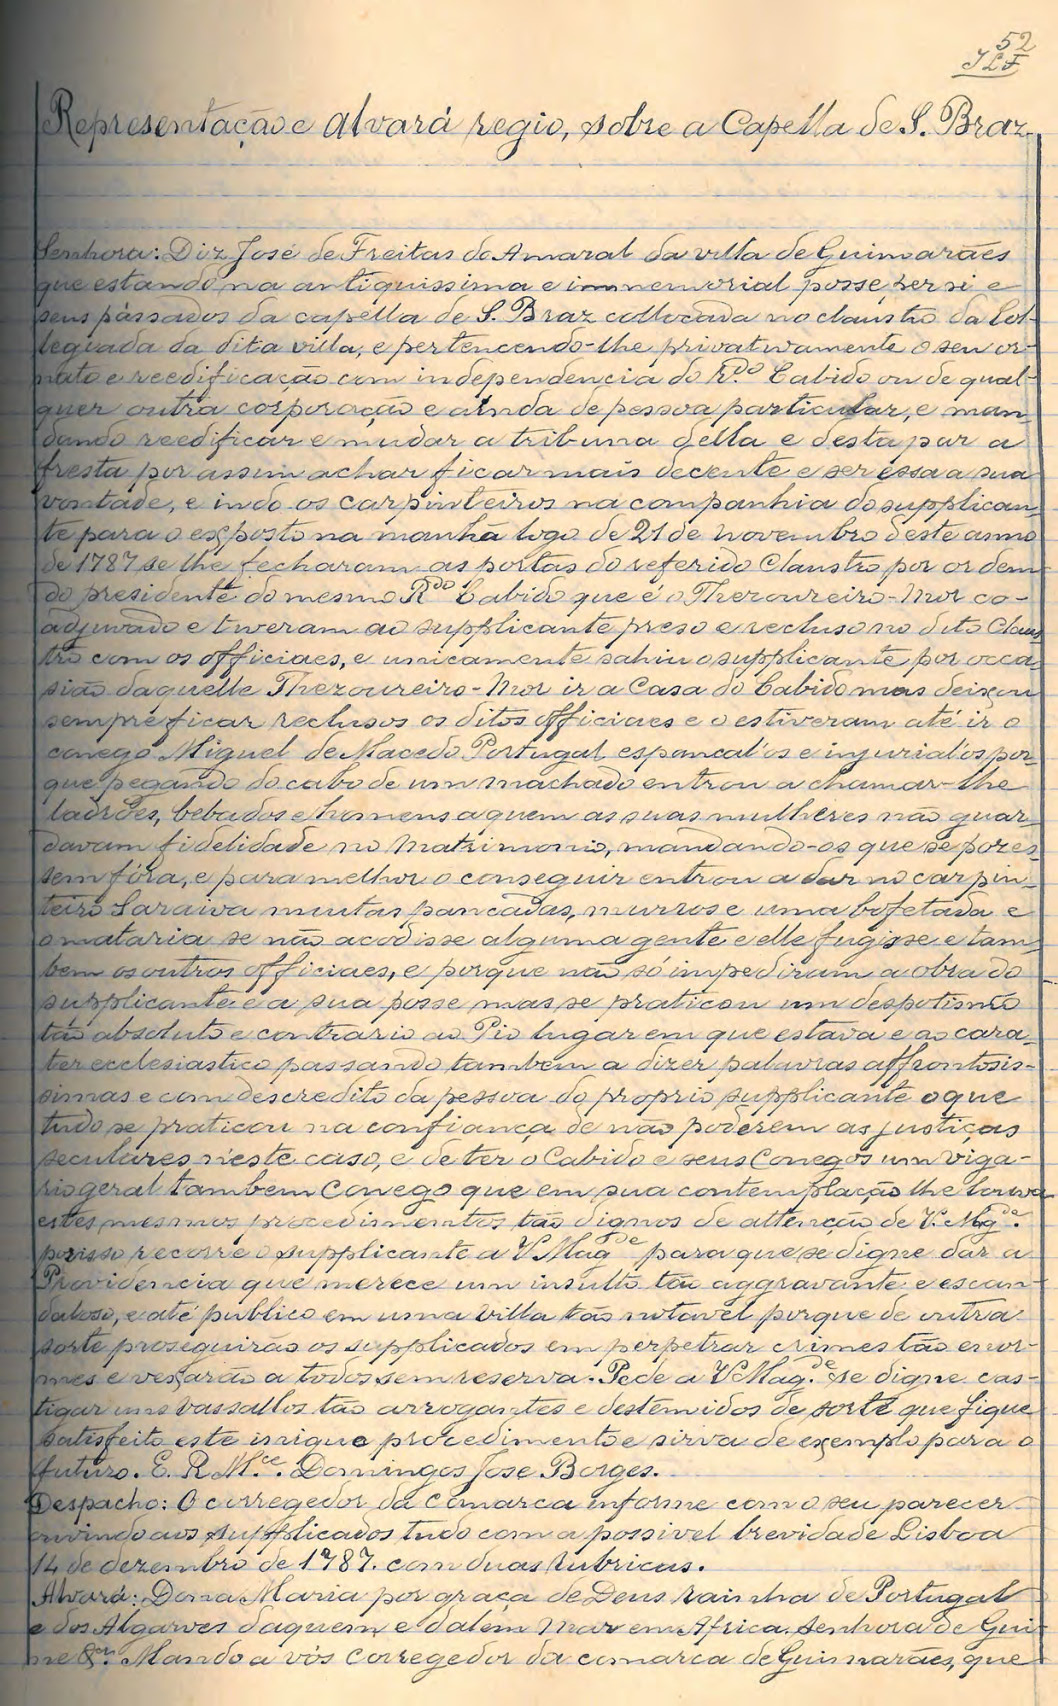 52
JLF
Representação e Alvará regio, sobre a Capella de S. Braz
Senhora: Diz José de Freitas do Amaral da villa de Guimarães
que estando na antiquissima e immemorial posse, per si e
seus pássados da capella de S. Braz collocada no claustro da Col-
legiada da dita villa, e pertencendo-lhe privativamente o seu or-
nato e reedificação com independencia do R.do Cabido ou de qual-
quer outra corporação e ainda de pessoa particular, e man-
dando reedificar e mudar a tribuna della e destapar a
fresta por assim achar ficar mais decente e ser essa a sua
vontade, e indo os carpinteiros na companhia do supplican-
te para o exposto na manhã logo de 21 de novembro deste anno
de 1787 se lhe fecharam as portas do referido Claustro por ordem
do presidente do mesmo R.do Cabido que é o Thezoureiro-Mor co-
adjuvado e tiveram ao supplicante preso e recluso no dito Claus
tro com os officiaes, e unicamente sahiu o supplicante por occa-
sião daquelle Thezoureiro-Mor ir a Casa do Cabido mas deixou
sempre ficar reclusos os ditos officiaes e o estiveram até ir o
conego Miguel de Macedo Portugal espancal'os e injurial'os por-
que pegando do cabo de um machado entrou a chamar-lhe
ladrões, bebados e homens a quem as suas mulheres não guar-
davam fidelidade no Matrimonio, mandando-os que se pozes-
sem fóra, e para melhor o conseguir entrou a dar no carpin-
teiro Saraiva muitas pancadas, murros e uma bofetada e
o mataria se não acodisse alguma gente e elle fugisse e tam-
bem os outros officiaes, e porque não só impediram a obra do
supplicante e a sua posse mas se praticou um despotismo
tão absoluto e contrario ao Pio lugar em que estava e ao cara-
ter ecclesiastico passando tambem a dizer palavras affrontosis-
simas e com descredito da pessoa do proprio supplicante o que
tudo se praticou na confiança de não poderem as justiças
seculares n'este caso, e de ter o Cabido e seus Conegos um viga-
rio geral tambem Conego que em sua contemplação lhe louva
estes mesmos procedimentos tão dignos de attenção de V. Mag.de
porisso recorre o supplicante a V Mag.de para que se digne dar a
Providencia que merece um insulto tão aggravante e escan-
daloso, e até publico em uma villa tão notavel porque de outra
sorte proseguirão os supplicados em perpetrar crimes tão enor-
mes e vexarão a todos sem reserva. Pede a V Mag.de se digne cas-
tigar uns vassallos tão arrogantes e destemidos de sorte que fique
satisfeito este iniquo procedimento e sirva de exemplo para o
futuro. E. R. M.ce. Domingos José Borges.
Despacho: O corregedor da comarca informe com o seu parecer
ouvindo aos supplicados tudo com a possivel brevidade Lisboa
14 de dezembro de 1787. com duas rubricas.
Alvará: Dona Maria por graça de Deus rainha de Portugal
e dos Algarves daquem e dalém Mar em Africa, Senhora de Gui-
né &. Mando a vós corregedor da comarca de Guimarães, que